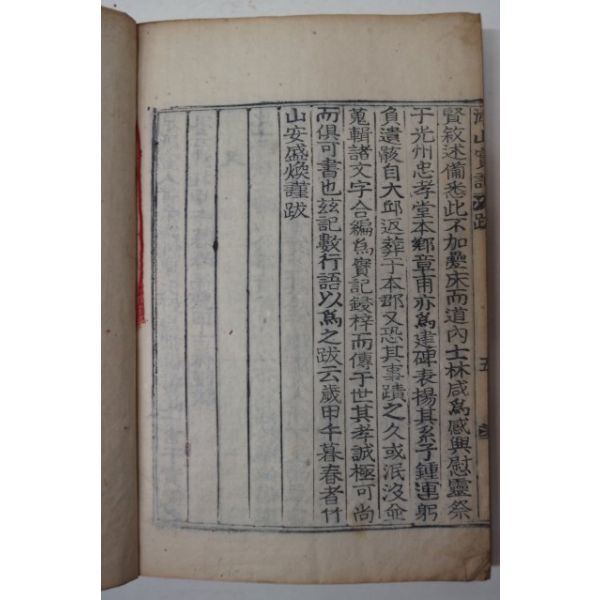 山實記跋
賢敘述備悉此不加疊床而道內士林咸爲感興慰靈祭
于光州忠孝堂本鄕章甫亦爲建碑表揚其系子鍾連躬
負遺骸自大邱返葬于本郡又恐其事蹟之久或泯沒並
蒐輯諸文字合編爲實記鋟梓而傳于世其孝誠極可尚
而俱可書也玆記數行語以爲之跋云歲甲午暮春者竹
山安盛煥謹跋
五